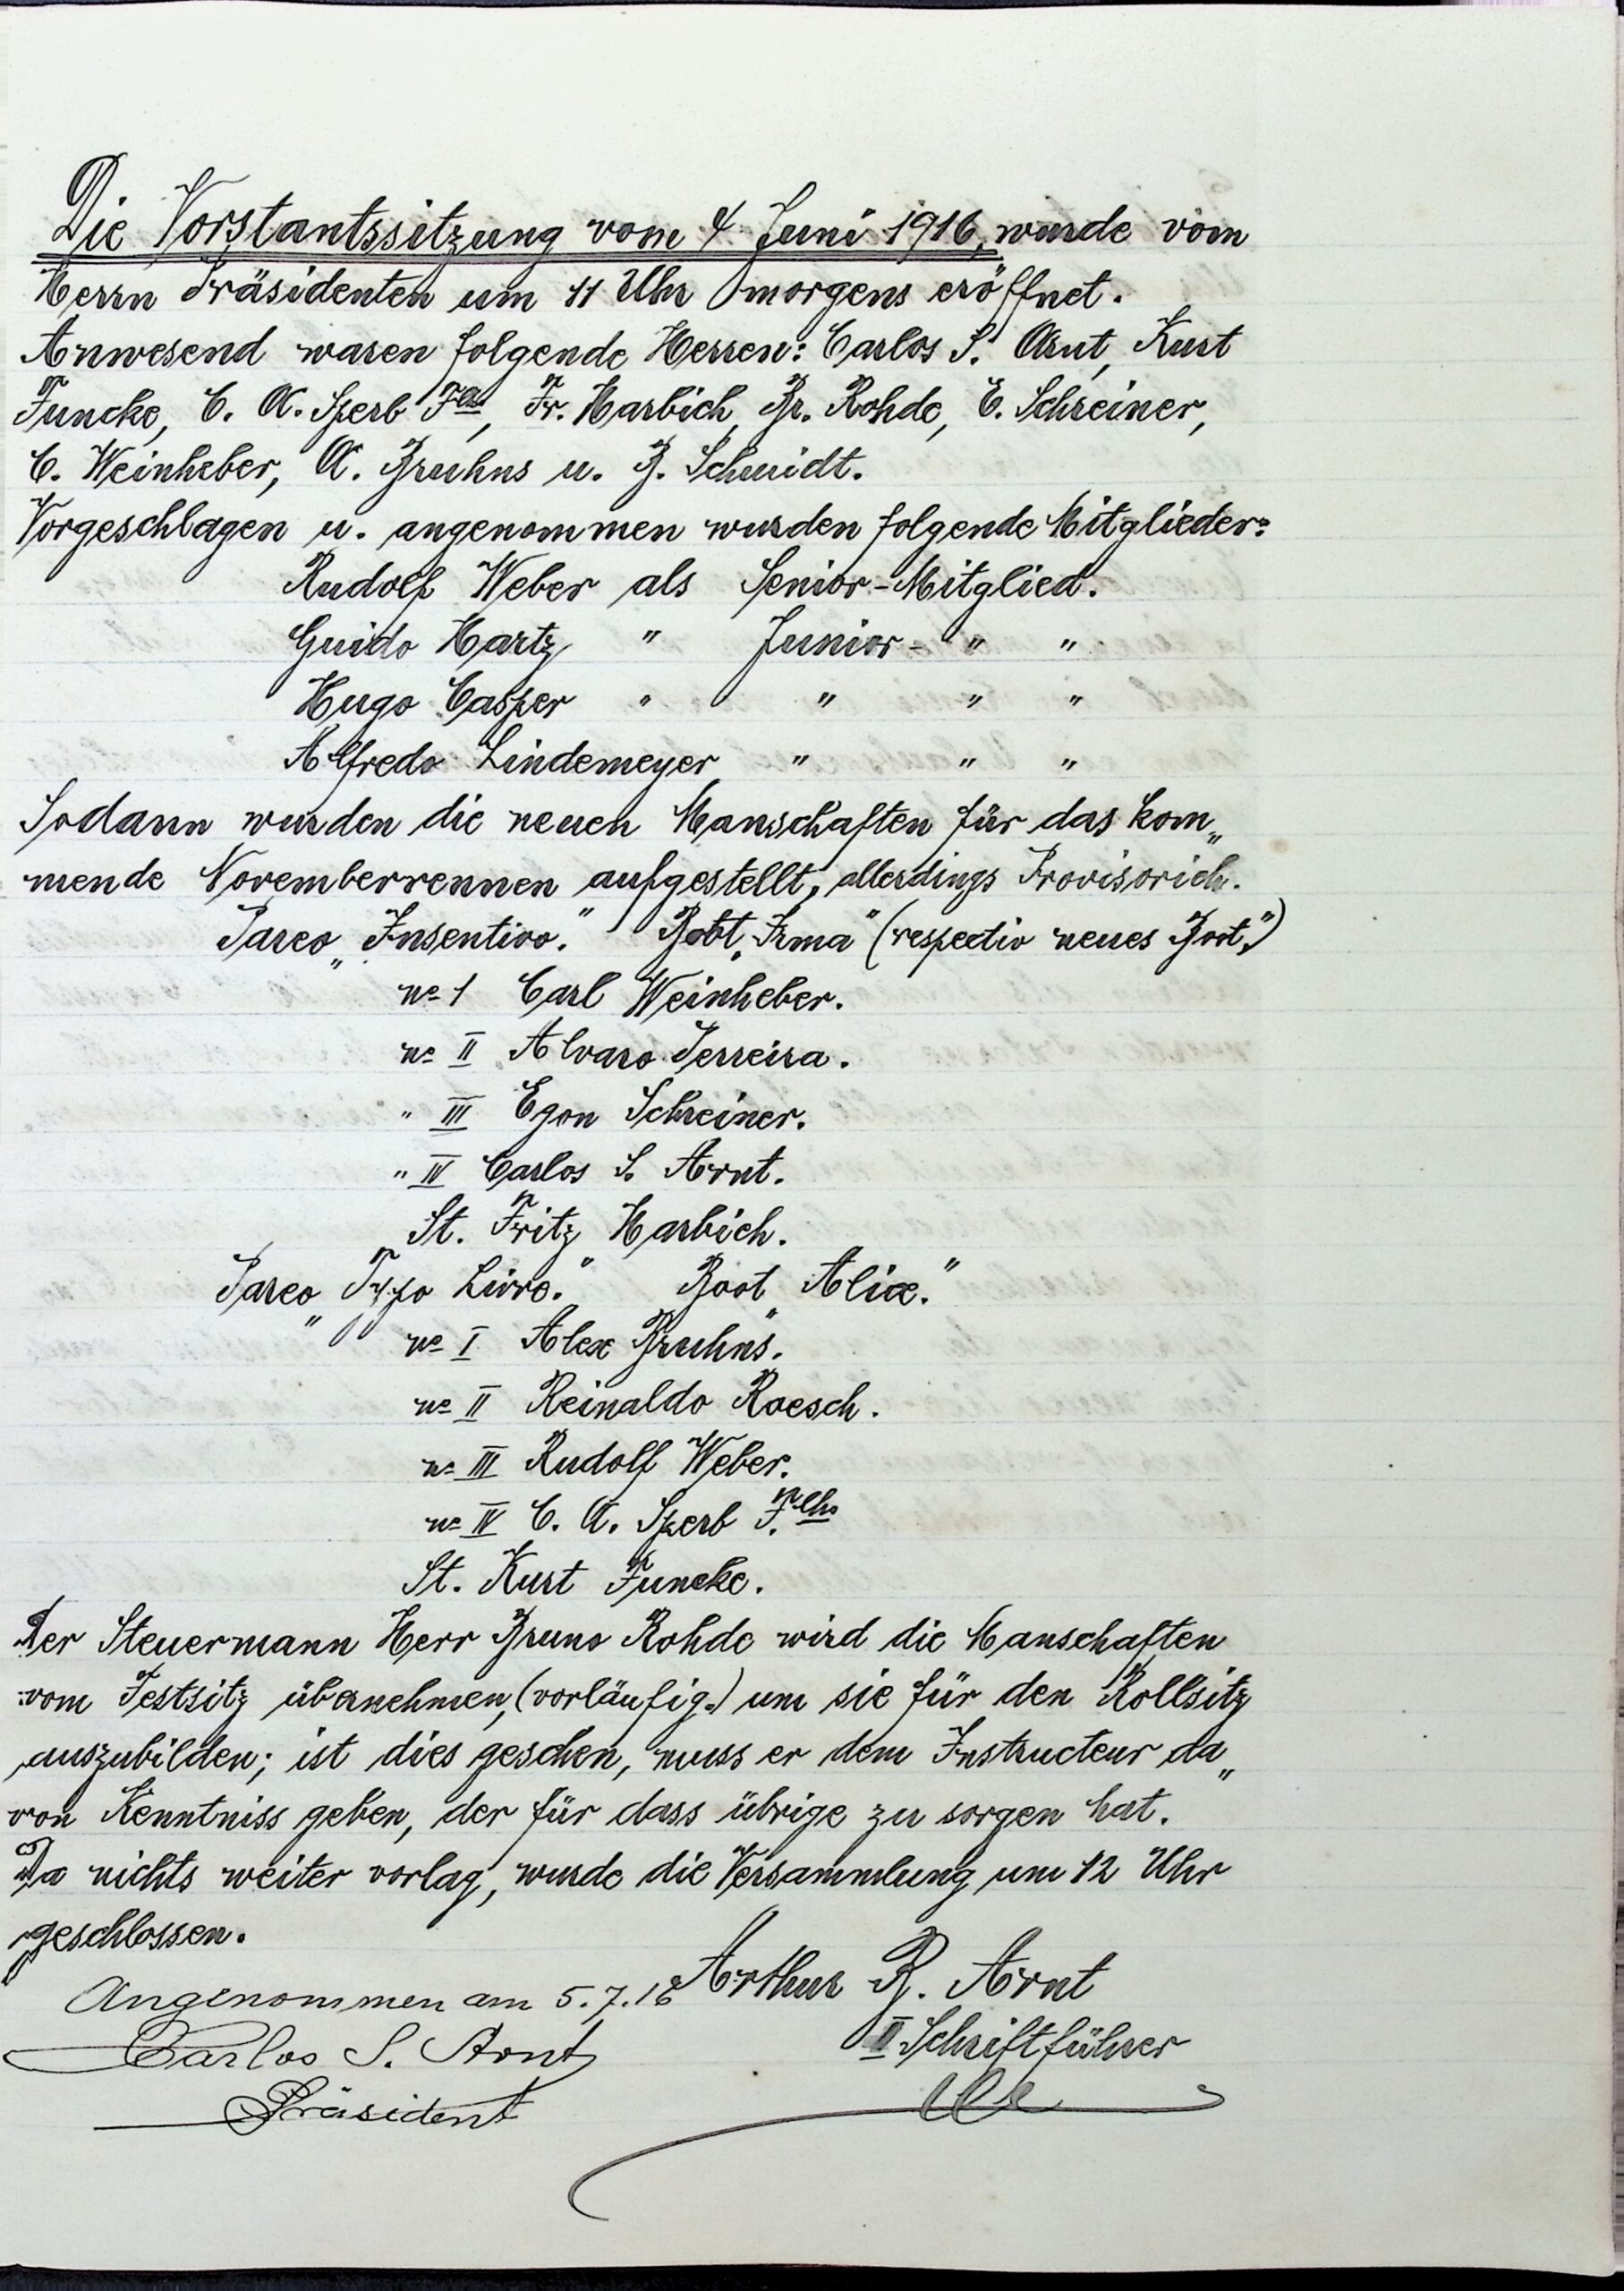 Die Vorstantssitzung vom 4 Juni 1916, wurde vom
Herrn Präsidenten um 11 Uhr morgens eröffnet.
Anwesend waren folgende Herren: Carlos S. Arnt, Kurt
Funcke, C. A. Sperb Flho, Fr. Harbich, Br. Rohde, E. Schreiner,
C. Weinheber, A. Bruhns u. B. Schmidt.
Vorgeschlagen u. angenommen wurden folgende Mitglieder:
Rudolf Weber als Senior-Mitglied.
Guido Hartz " Junior- " "
Hugo Casper " " " "
Alfredo Lindemeyer " " "
Sodann wurden die neuen Manschaften für das kom„
mende Novemberrennen aufgestellt, allerdings Provisorich.
Pareo „Insentivo." Boot „Irma" (respectiv neues Boot")
no 1 Carl Weinheber.
no II Alvaro Ferreira.
" III Egon Schreiner.
" IV Carlos S. Arnt.
St. Fritz Harbich.
Pareo „Typo Livro." Boot „Alice."
no I Alex Bruhns.
no II Reinaldo Roesch.
no III Rudolf Weber.
no IV C. A. Sperb F.lho
St. Kurt Funcke.
Der Steuermann Herr Bruno Rohde wird die Manschaften
vom Festsitz übernehmen, (vorläufig.) um sie für den Rollsitz
auszubilden; ist dies geschen, muss er dem Instructeur da„
von Kenntniss geben, der für dass übrige zu sorgen hat.
Da nichts weiter vorlag, wurde die Versammlung um 12 Uhr
geschlossen.
Angenommen am 5.7.16 Arthur R. Arnt
Carlos S. Arnt II Schriftführer
Präsident